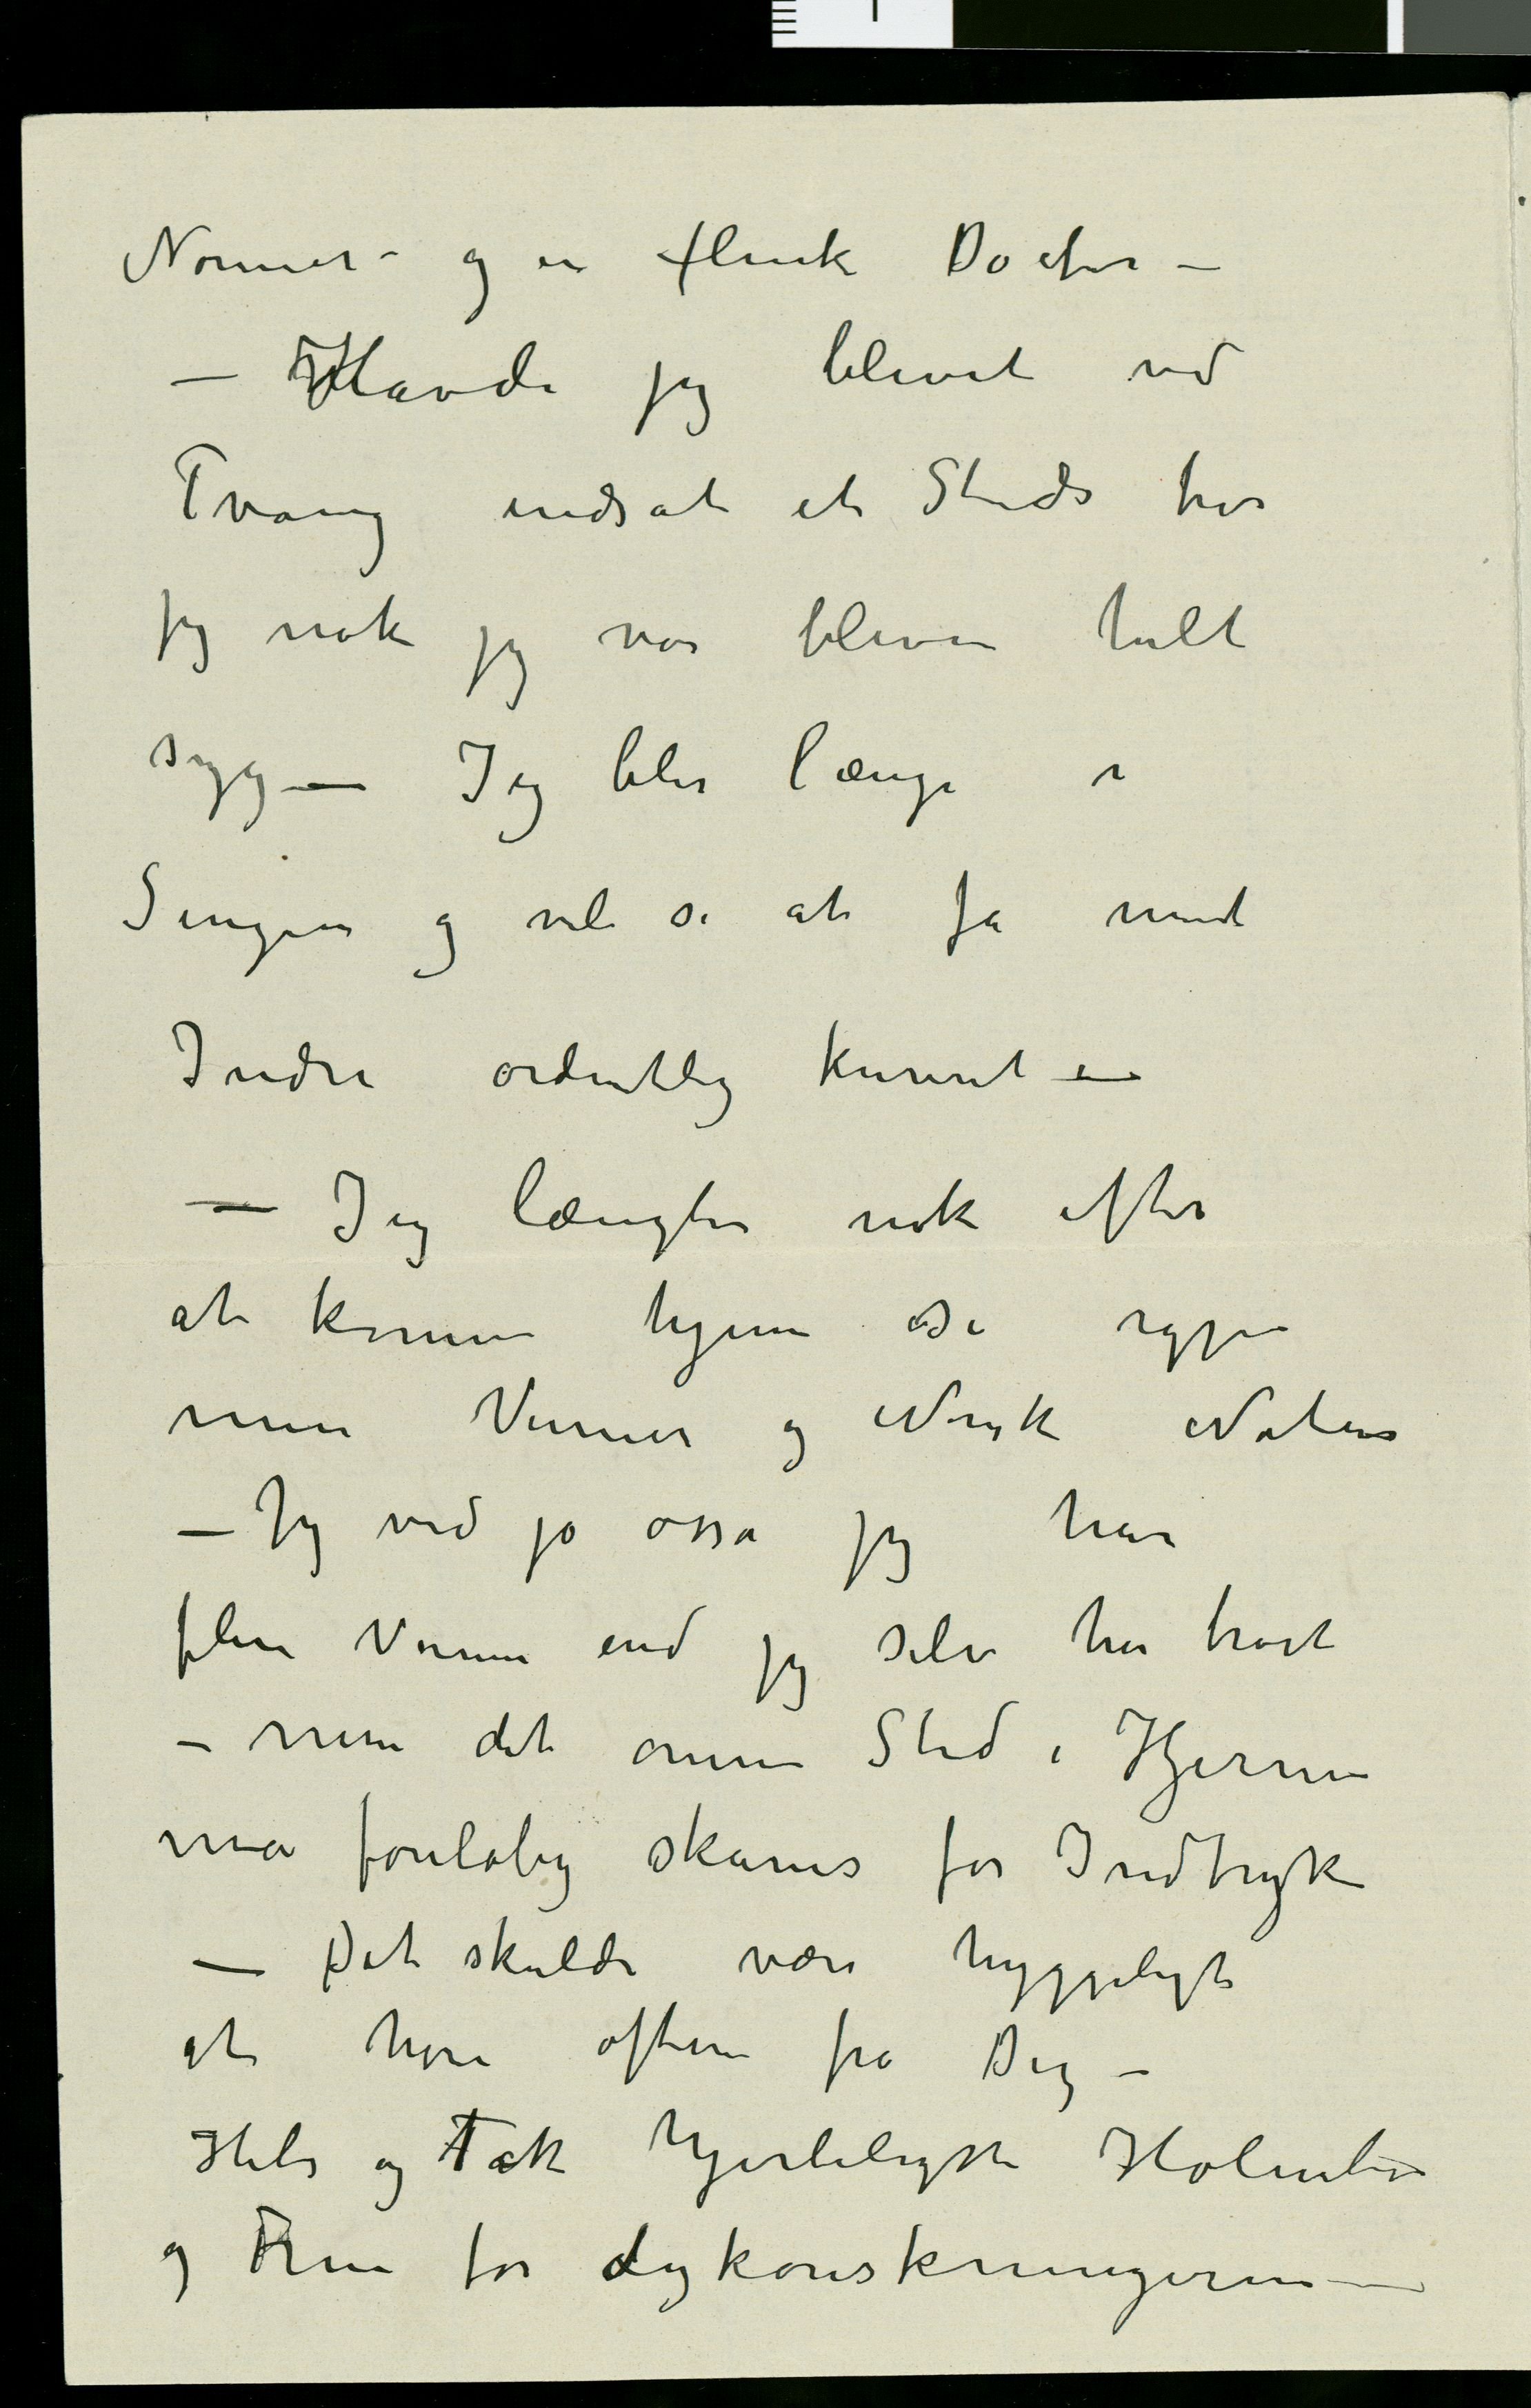 Nonner – og en flink Doctor –
– Havde jeg blevet ved
Tvang indsat et Steds tror
jeg nok jeg var bleven helt
syg – Jeg blir længe i
Sengen og vil se at få mit
Indre ordentlig kureret –
– Jeg længter nok efter
at komme hjem se igjen
mine Venner og Norsk Natur
– Jeg ved jo osså jeg har
flere Venner end jeg selv har troet
– men det ømme Sted i Hjernen
må foreløbig skånes for Indtryk
– Det skulde være hyggeligt
at høre oftere fra Dig –
Hils og Tak hjerteligst Holmboe
og Frue for Lykønskningerne –